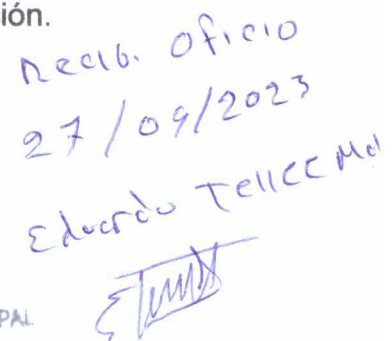 sión.
Recib. Oficio
27/09/2023
Eduardo Tellcc Md
PAL